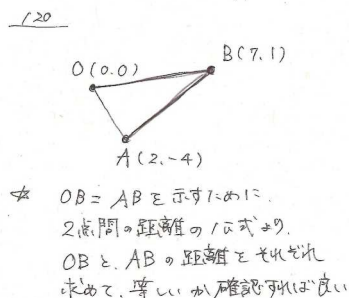 120
O(0.0)
B(7.1)
A(2.-4)
☆ OB = ABを示すために.
2点間の距離の公式より.
OBと.ABの距離をそれぞれ
求めて、等しいか確認すれば良い